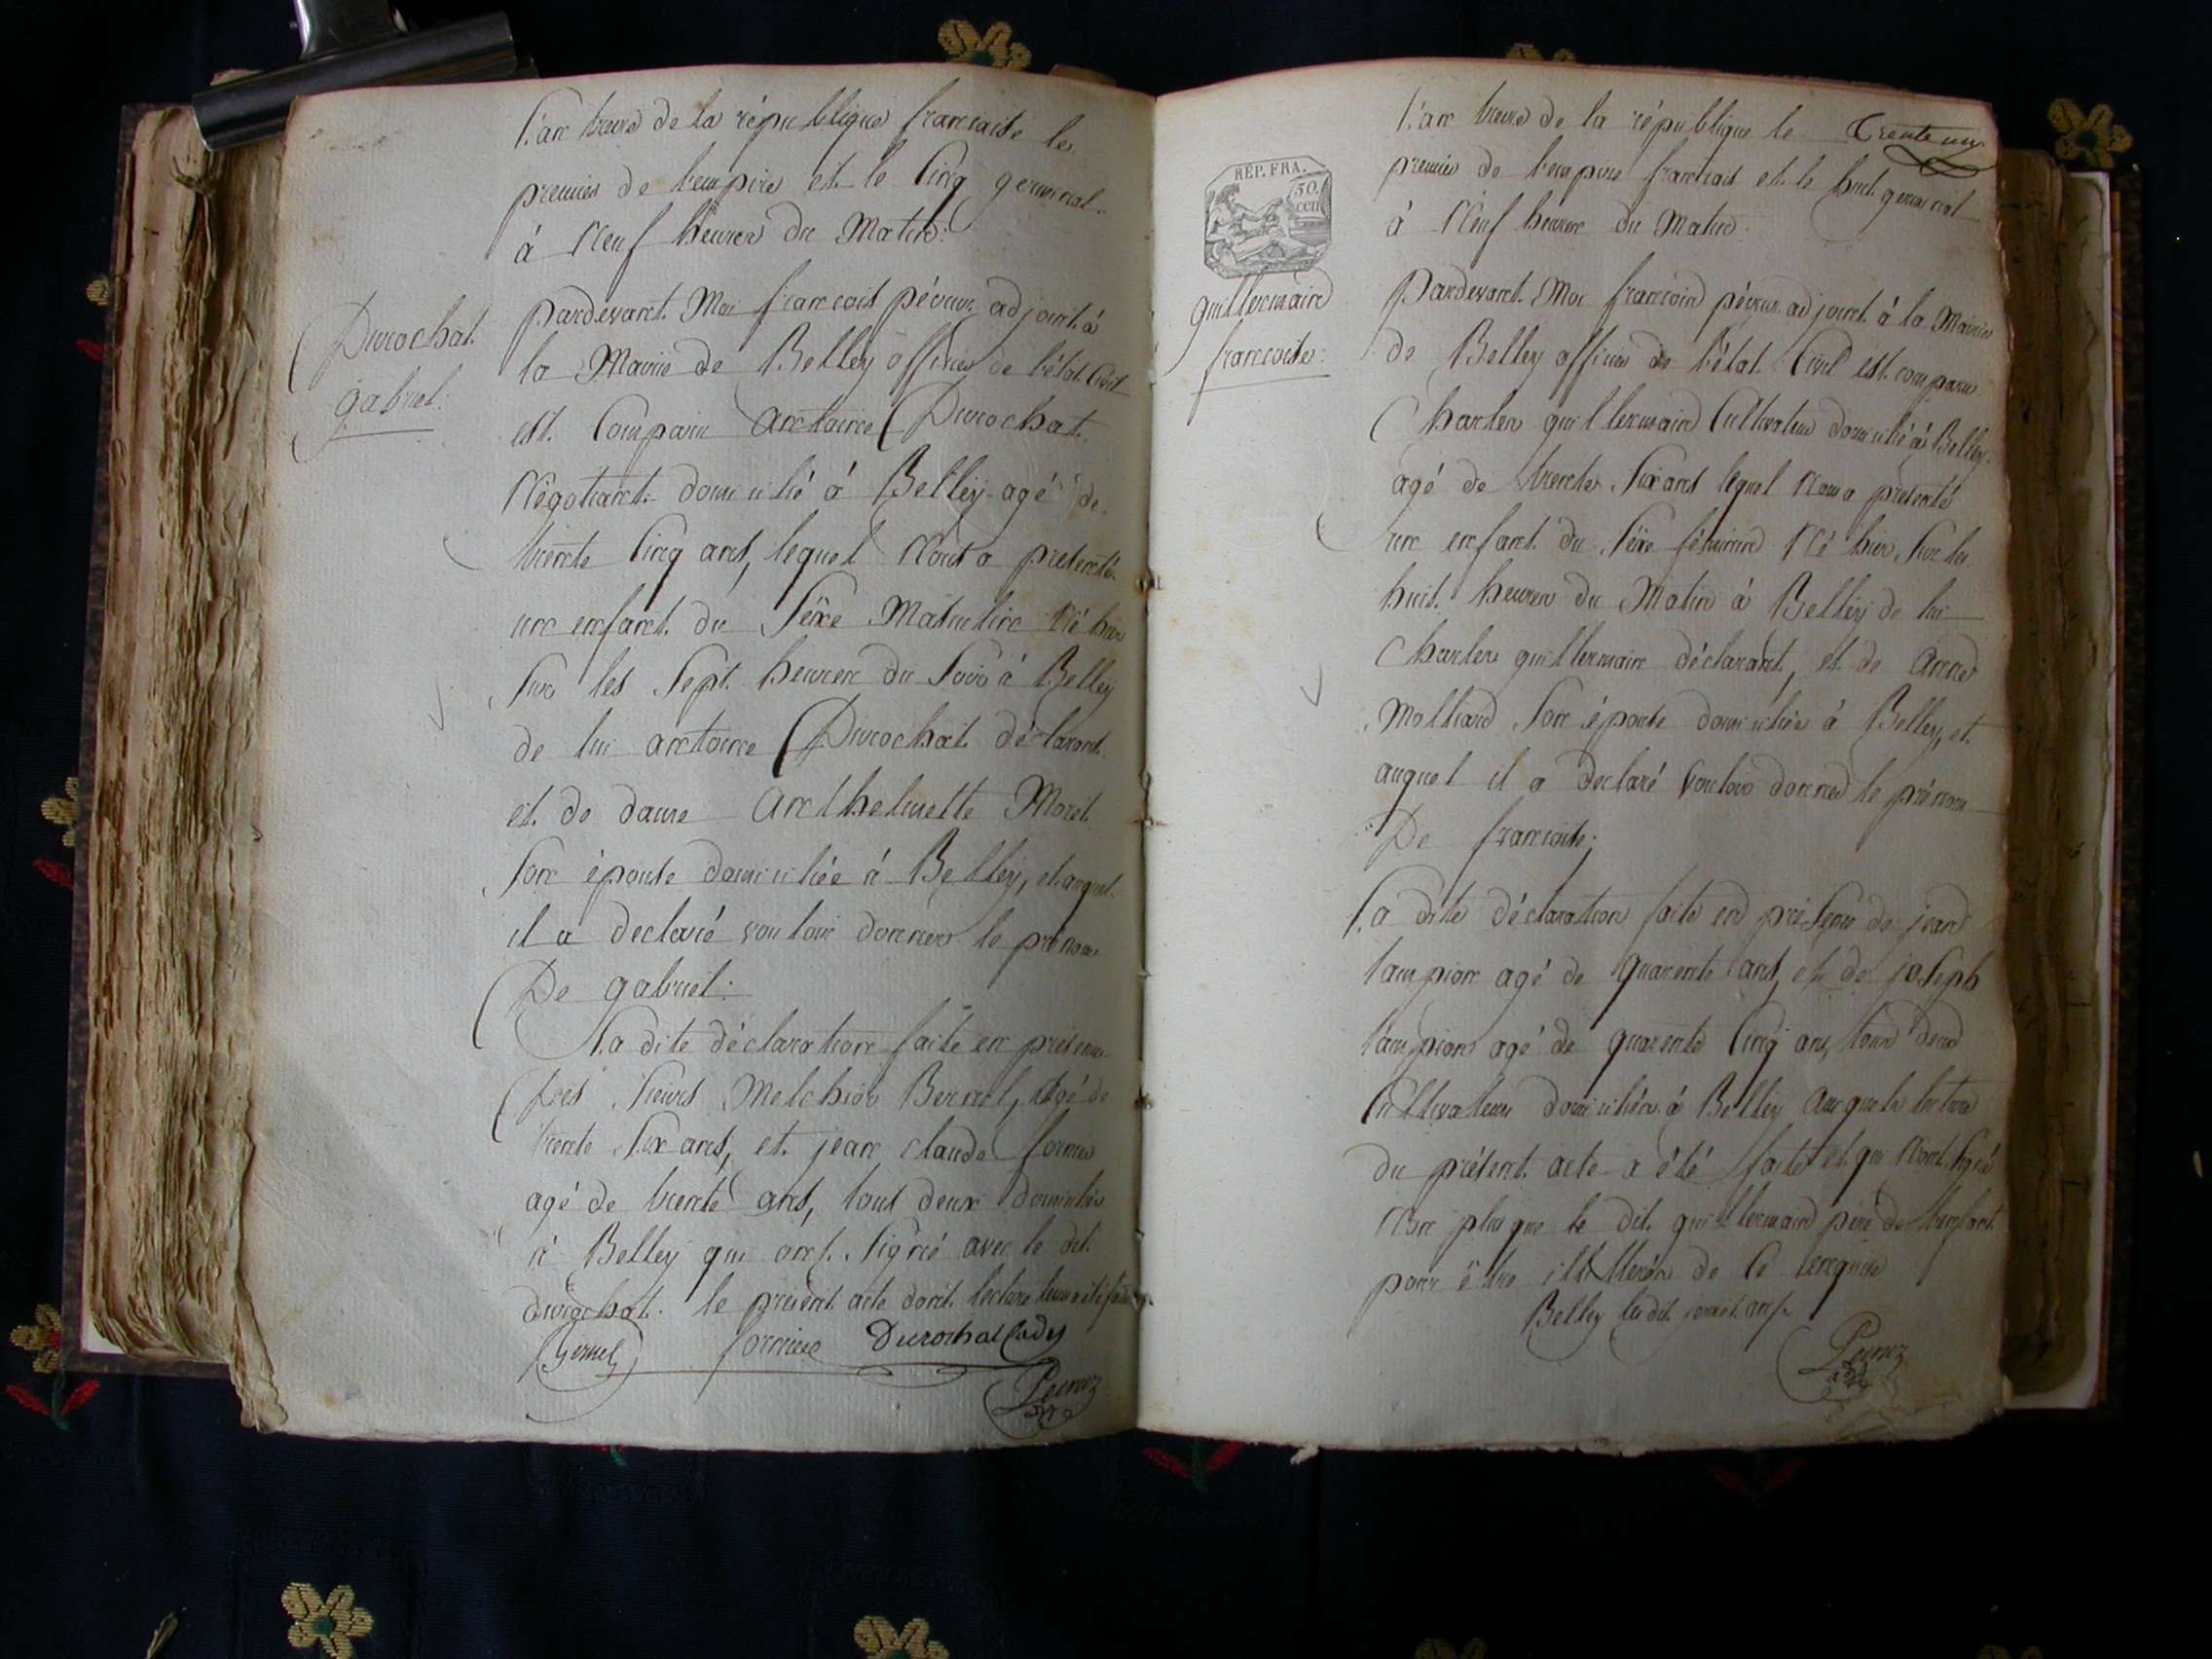 L'an treize de la république francaise le
premier de l'empire et le Cinq germinal
à Neuf heures du Matin:
Durochat
gabriel:
Pardevant Moi francois péviur adjoint à
la Mairie de Belley officier de l'état Civil
est Comparu antoine Durochat
Négotiant domicilié à Belley agé de
trente Cinq ans, lequel Nous a presenté
un enfant du Séxe Masculin Né hier
Sur les Sept heures du Soir à Belley
de lui antoine Durochat déclarant
et de dame anthelmette Moret
Son épouse domiciliée à Belley, et auquel
il a declaré vouloir donner le prénom
De gabriel:
La dite déclaration faite en présence
Des Sieurs Melchior Bernel, agé de
trente Six ans, et jean claude
agé de trente ans, tous deux domiciliés
à Belley qui ont Signé avec le dit
durochat le présent acte dont lecture leur a été faite
Durochat
REP. FRA.
50.
cen
L'an treize de la république le
Trente un
premier de l'empire francais et le huit germinal
à Neuf heures du Matin
guillermain
francoise:
Pardevant Moi francois adjoint à la Mairie
de Belley officier de l'état Civil est comparu
Charles guillermain Cultivateur domicilié à Belley
agé de trente Six ans lequel Nous a presenté
un enfant du Séxe féminin Né hier Sur les
huit heures du Matin à Belley de lui
Charles guillermain déclarant, et de anne
Molliard Son épouse domiciliée à Belley, et
auquel il a declaré vouloir donner le prénom
De francoise;
La dite déclaration faite en présence de jean
tampion agé de quarente ans, et de joseph
tampion agé de quarente Cinq ans, tous deux
Cultivateurs domiciliés à Belley auquels lecture
du présent acte a été faite et qui N'ont Signé
Non plus que le dit guillermain père de l'enfant
pour être illitterés de Ce enquis
Belley les dit jour et an